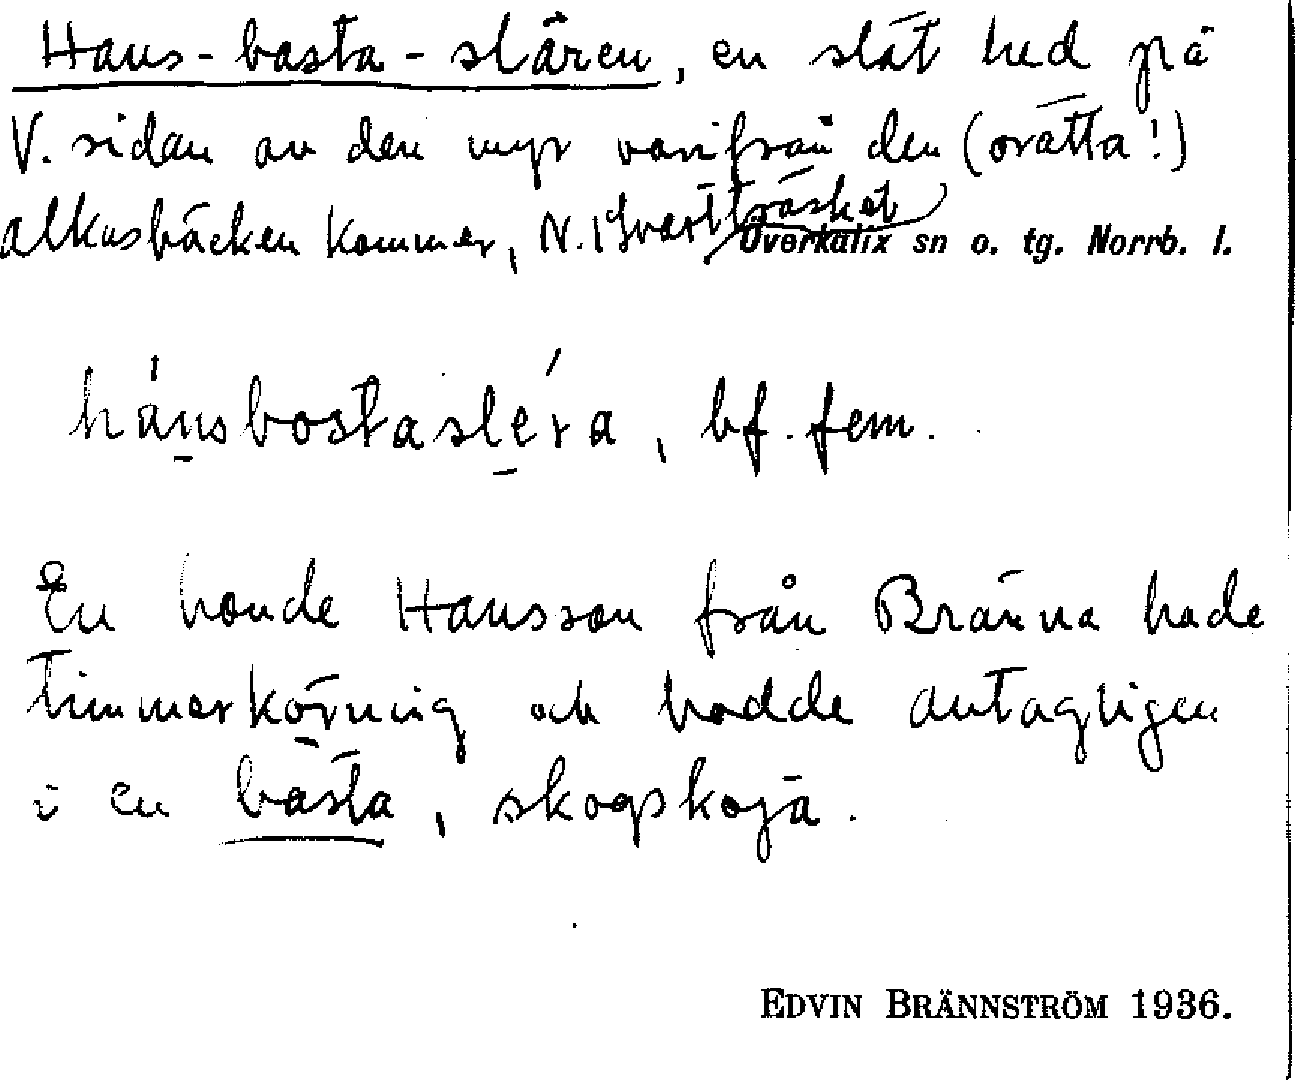 Hans-basta-slären, en slät hed på
V. sidan av den myr varifrån den (orätta!)
alkasbäcken kommer, N. i Svartträsket
Överkalix sn o. tg. Norrb. l.
hánsbostasléra, bf. fem.
En bonde Hansson från Bränna hade
timmerkörning och bodde antagligen
i en basta, skogskoja.
EDVIN BRÄNNSTRÖM 1936.